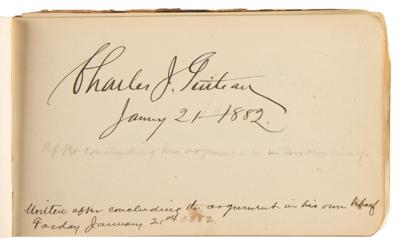 Charles J. Guiteau
Jany 21 - 1882.
After concluding his argument in his own behalf.
Written after concluding the argument in his own behalf
Friday January 21st 1882